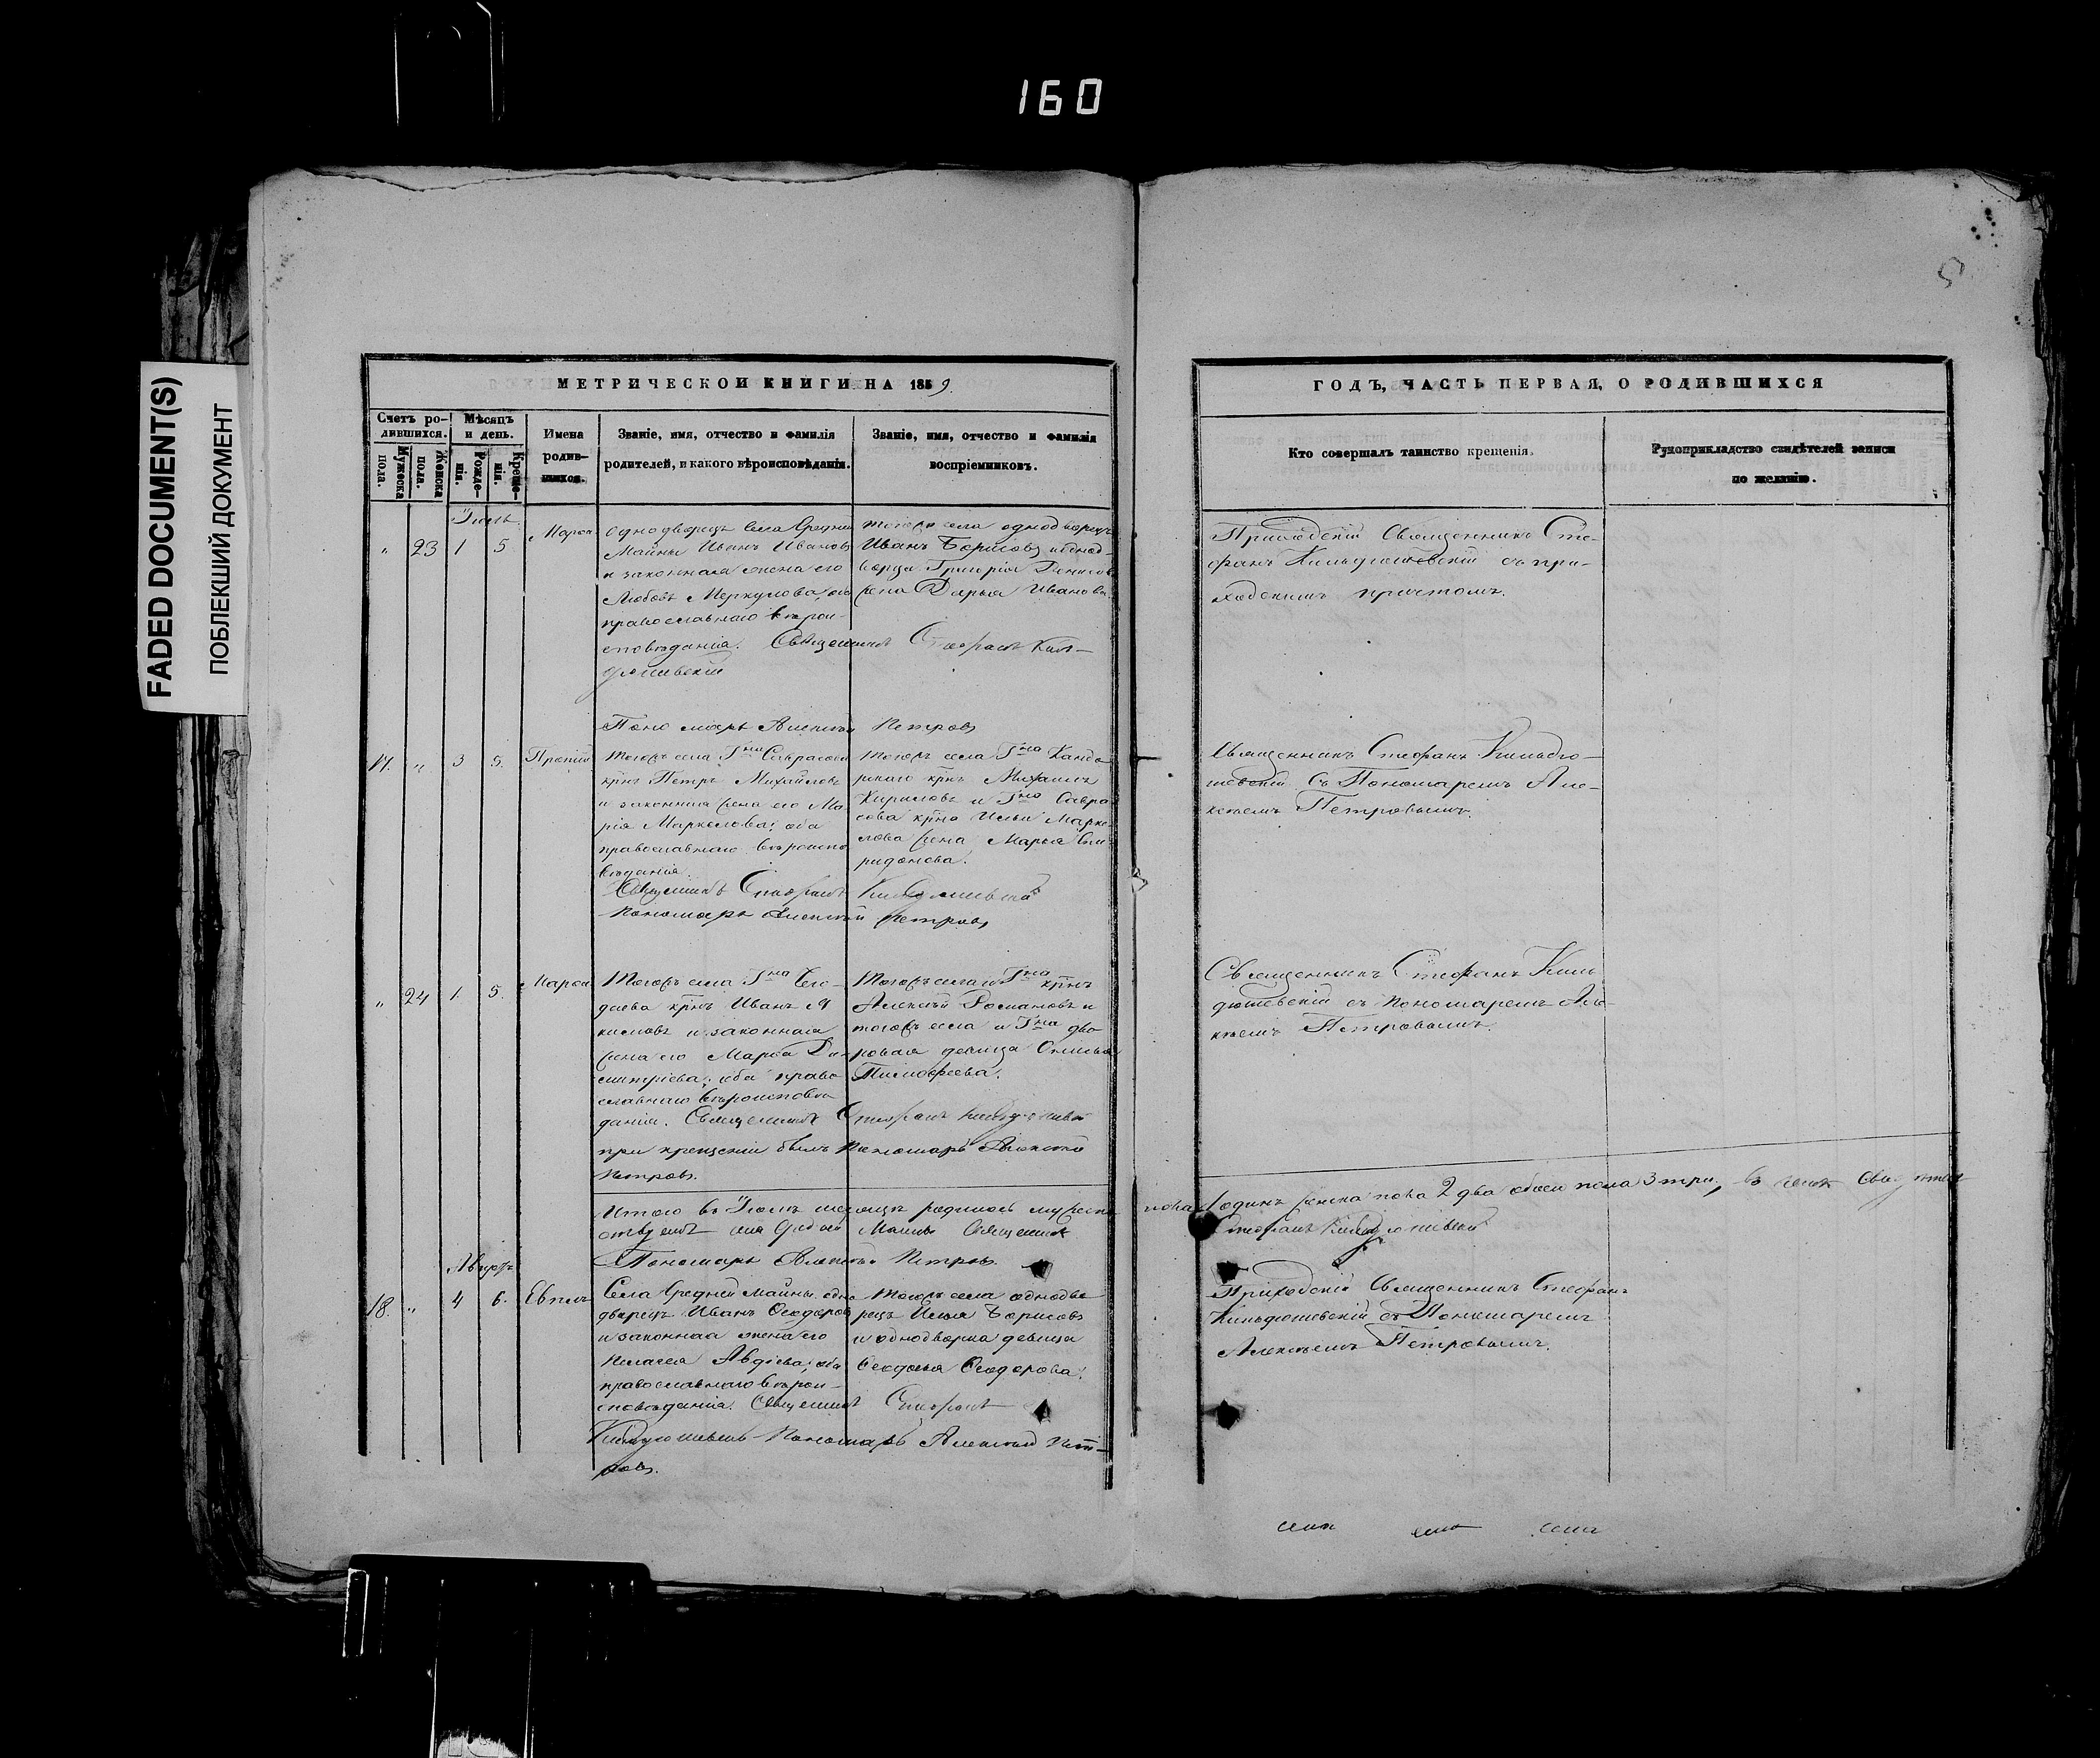 160
FADED DOCUMENT(S)
ПОБЛЕКШИЙ ДОКУМЕНТ
5
МЕТРИЧЕСКОЙ КНИГИ НА 1859
Счетъ ро-
дившихся.
Мужеска
пола.
Женска
пола.
Мѣсяцъ
и день.
Рожде-
нія.
Креще-
нія.
Имена
родив-
шихся.
Званіе, имя, отчество и фамилія
родителей, и какого вѣроисповѣданія.
Званіе, имя, отчество и фамилія
воспріемниковъ.
ГОДЪ, ЧАСТЬ ПЕРВАЯ, О РОДИВШИХСЯ
Кто совершалъ таинство крещенія.
Рукоприкладство свидѣтелей записи
по желанію.
Іюль
" 23 1 5 Марѳа
однодворецъ села Средней
Майны Иванъ Ивановъ
и законная жена его
Любовь Меркулова, оба
православнаго вѣрои-
споведанія. Священникъ Стефанъ Киль-
дюшевскій
Пономарь Алексѣй Петровъ
тогожъ села однодворецъ
Иванъ Борисовъ и однод-
ворца Григорія Денисова
жена Дарья Иванова.
Приходскій Священникъ Сте-
фанъ Кильдюшевскій съ при-
ходскимъ причтомъ.
17. " 3 5. Прокпій
Тогожъ села Гна Саврасова
крнъ Петръ Михайловъ
и законная жена его Ма-
рія Маркелова; оба
православнаго вѣроиспо
вѣданія.
Священникъ Стефанъ Кильдюшевскій
Пономарь Алексѣй Петровъ
Тогожъ села Гна
крнъ Михаилъ
Кириловъ и Гна Савра
сова крна Ильи Марке
лова жена Марья Спи
ридонова.
Священникъ Стефанъ Кильдю-
шевскій съ Пономаремъ Але-
ксѣемъ Петровымъ.
" 24 1. 5. Марѳа
Тогожъ села Гна
крнъ Иванъ
и законная
жена его Марѳа Ди-
митріева; оба право
славнаго вѣроисповѣ
данія. Священникъ Стефанъ Кильдюшевскій
при крещеніи былъ Пономарь Алексѣй
Петровъ.
Тогожъ села и Гна крнъ
Алексѣй Романовъ и
тогожъ села и Гна дво
ровая девица
Тимофеева.
Священникъ Стефанъ Киль
дюшевскій съ Пономаремъ Але-
ксѣемъ Петровымъ.
Итого въ Іюлѣ месяцѣ родилось мужеска пола 1 одинъ женска пола 2 два обоего пола 3 три, въ чемъ свидетель
ствуемъ села Средней Майны Священникъ Стефанъ Кильдюшевскій
Пономарь Алексѣй Петровъ.
Августъ
18. " 4 6. Евплъ
Села Средней Майны одно
дворецъ Иванъ Ѳеодоровъ
и законная жена его
Пелагея Авдіева; оба
православнаго вѣрои-
споведанія. Священникъ Стефанъ
Кильдюшевскій Пономарь Алексѣй Пет-
ровъ.
Тогожъ села однодво
рецъ Илья Борисовъ
и однодворка девица
Ѳеодосья Ѳеодорова.
Приходскій Священникъ Стефанъ
Кильдюшевскій съ Пономаремъ
Алексѣемъ Петровымъ.